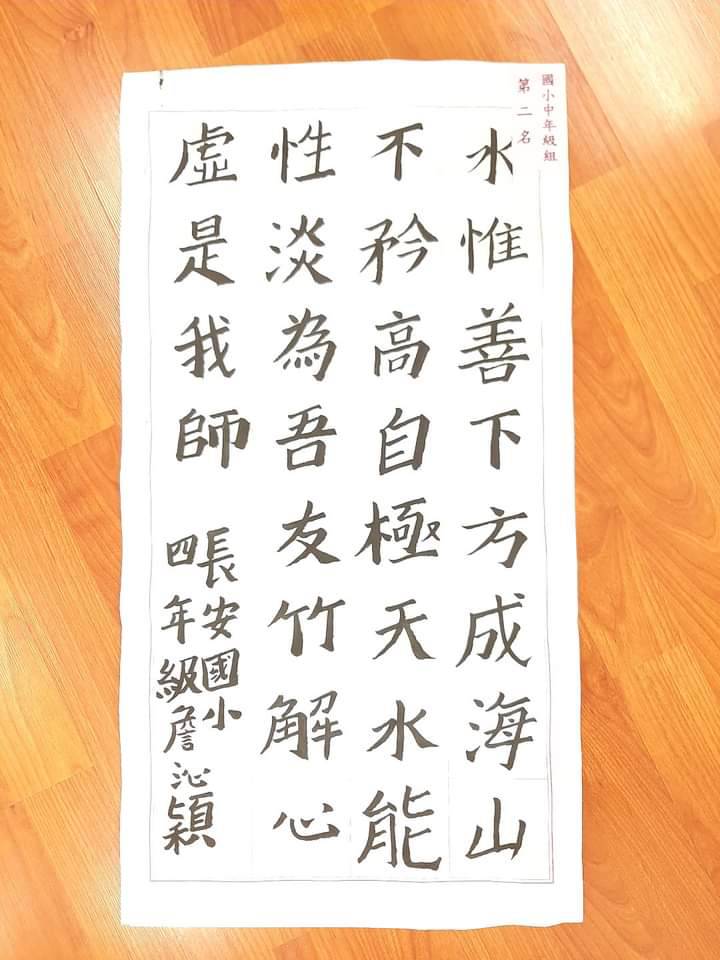 國小中年級組
第二名
水惟善下方成海山
不矜高自極天水能
性淡為吾友竹解心
虛是我師
長安國小
四年級詹沁穎